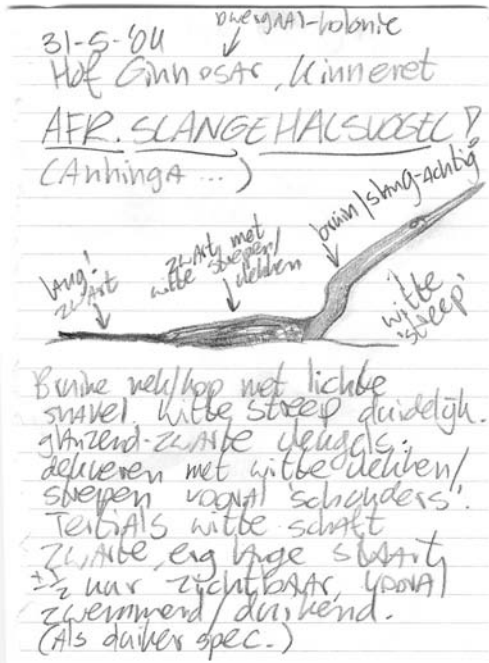 31-5-'04 Dwergaal-kolonie
Hof Ginnosar, Kinneret
AFR. SLANGEHALSVOGEL!
(Anhinga ...)
bruin/slang-achtig
zwart met
witte strepen/
vlekken
lang!
zwart
witte
'streep'
Bruine nek/kop met lichte
snavel. Witte streep duidelijk.
glanzend-zwarte vleugels.
dekveren met witte vlekken/
strepen vooral 'schouders'.
Tertials witte schaft
Zwarte, erg lange staart,
± ½ uur zichtbaar, vooral
zwemmend/duikend.
(Als duiker spec.)